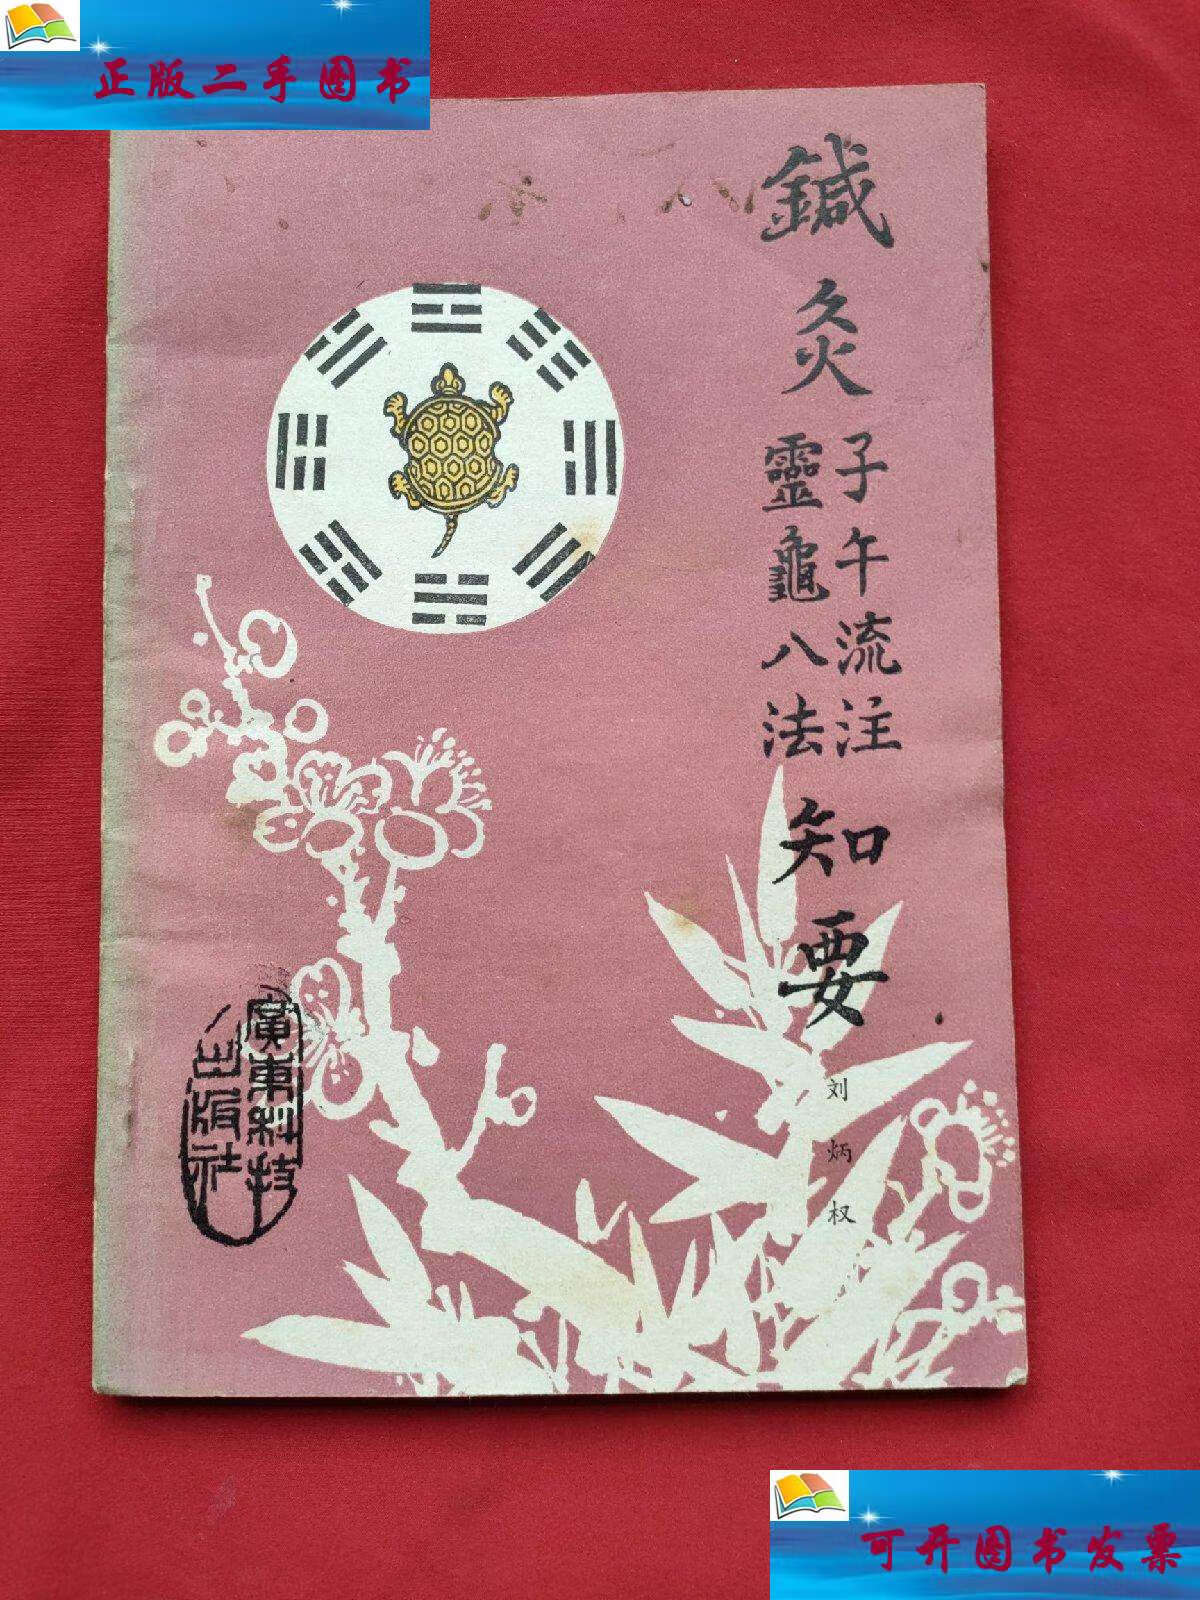 正版二手图书
鍼灸
子午流注
靈龜八法
知要
刘炳权
廣東科技
出版社
可开图书发票